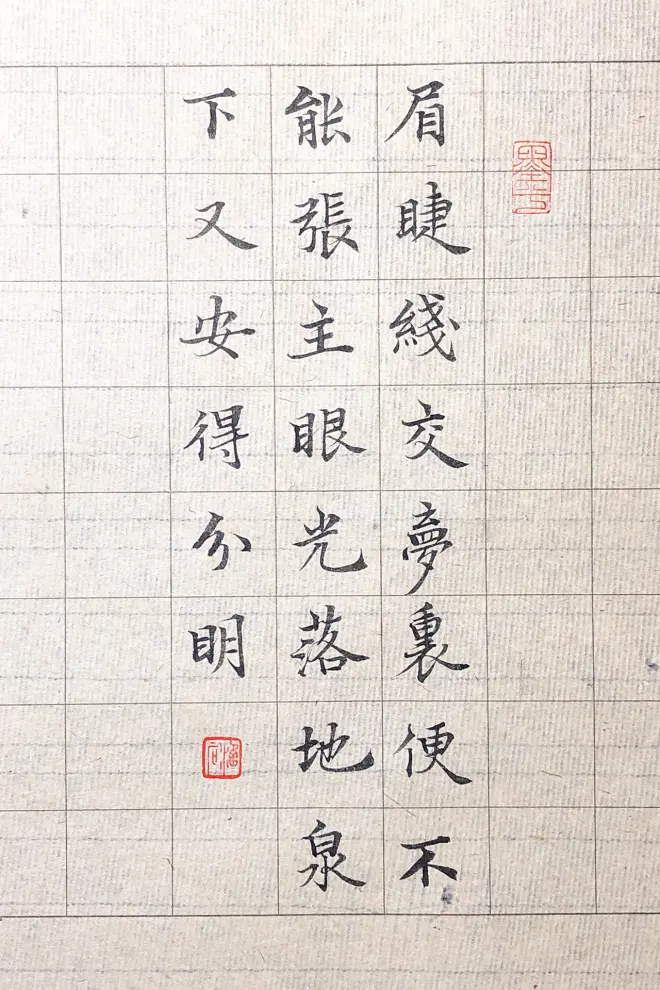 眉睫綫交夢裏便不
能張主眼光落地泉
下又安得分明